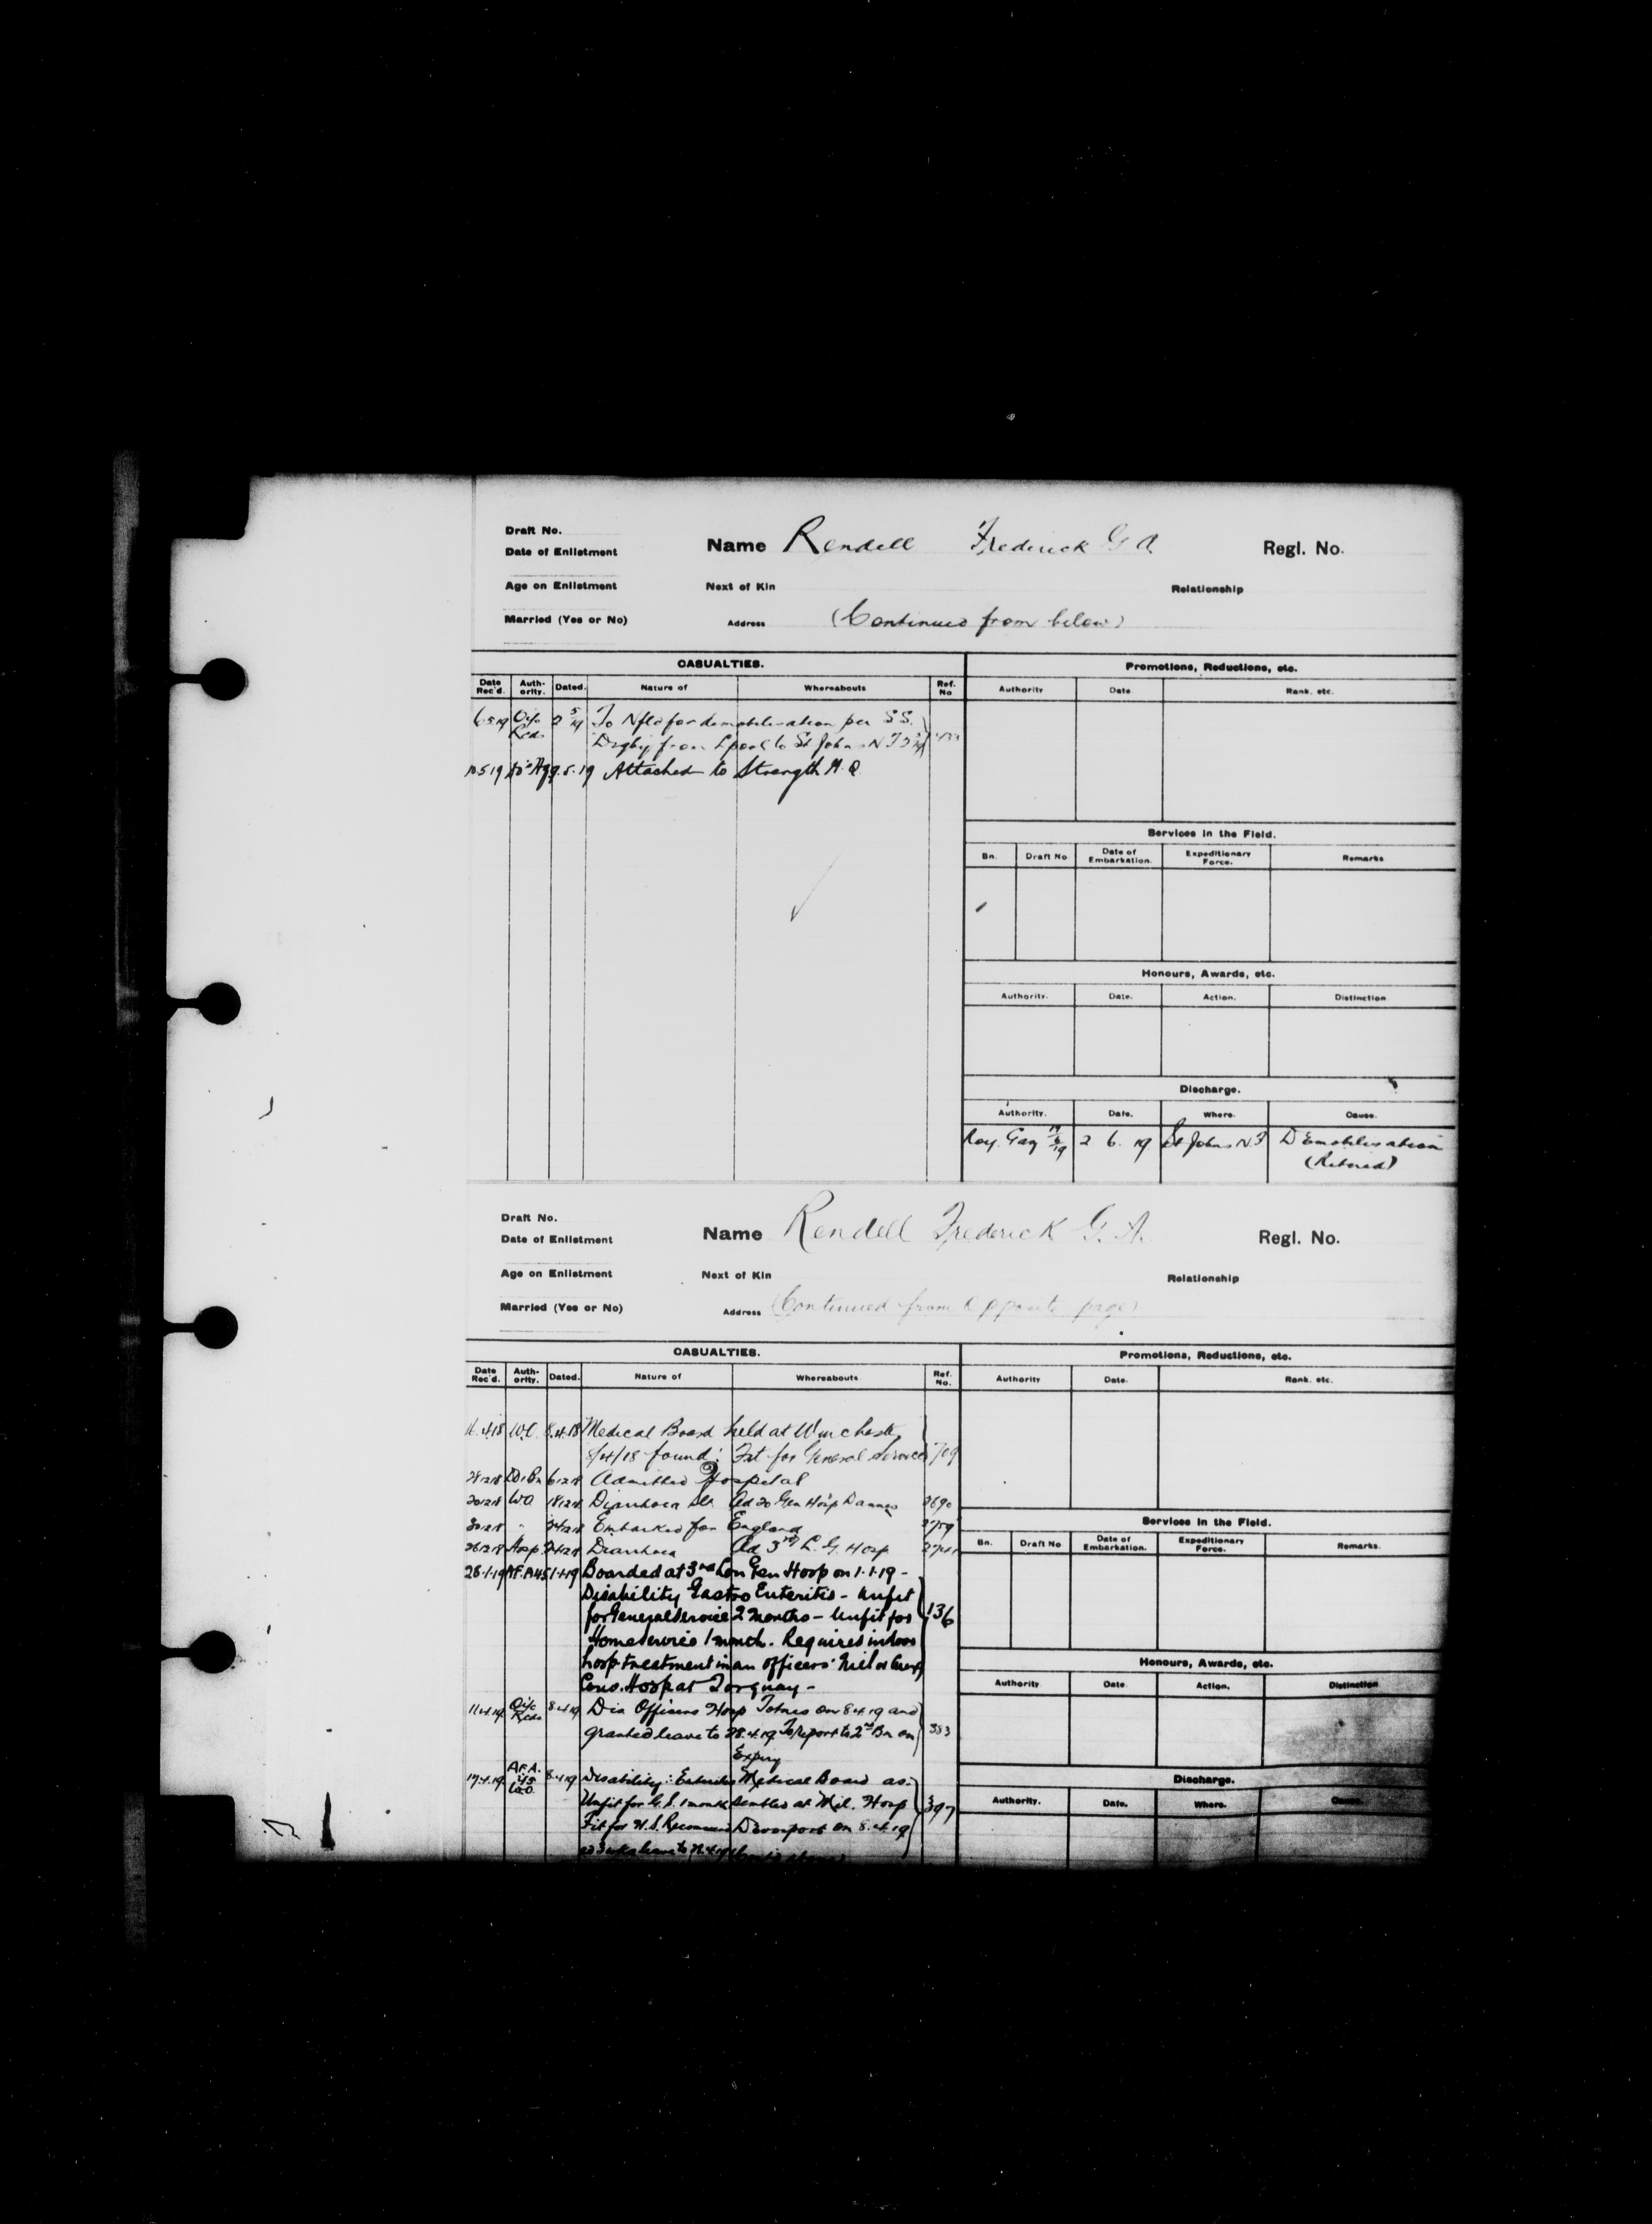 Draft No.
Name Rendell Frederick G A. Regl. No.
Date of Enlistment
Age on Enlistment Next of Kin Relationship
Married (Yes or No) Address (Continued from below)
CASUALTIES. Promotions, Reductions, etc.
Date Rec'd. Auth-ority. Dated. Nature of Whereabouts Ref. No Authority Date Rank, etc.
6.5.19 O i/c Rcds 2 5/19 To Nfld for demobilisation per S.S.
Digby from Lpool to St Johns N F
10.5.19 9.5.19 Attached to Strength H.Q.
Services in the Field.
Bn. Draft No Date of Embarkation. Expeditionary Force. Remarks
Honours, Awards, etc.
Authority. Date. Action. Distinction
Discharge.
Authority. Date. Where. Cause.
Roy. Gaz 2 6. 19 St Johns N F Demobilisation
(Retired)
Draft No.
Name Rendell Frederick G. A. Regl. No.
Date of Enlistment
Age on Enlistment Next of Kin Relationship
Married (Yes or No) Address (Continued from opposite page)
CASUALTIES. Promotions, Reductions, etc.
Date Rec'd. Auth-ority. Dated. Nature of Whereabouts Ref. No. Authority Date. Rank, etc.
W.O. 8.4.18 Medical Board held at Winchester
8/4/18 found: Fit for General Service 709
28.12.18 6.12.18 Admitted Hospital
20.12.18 WO 18.12.18 Diarrhoea Ad 20 Gen Hosp Dannes 2690
30.12.18 " 24.12.18 Embarked for England 2759
26.12.18 Hosp 24.12.18 Diarrhoea Ad 3rd L. G. Hosp
28.1.19 A.F.A45 1.1.19 Boarded at 3rd Lon Gen Hosp on 1.1.19 -
Disability Gastro Enteritis - Unfit
for General Service 2 months - Unfit for 136
Home Service 1 month. Requires indoor
hosp treatment in an officers'
Conv. Hosp at Torquay -
11.4.19 O i/c Rcds 8.4.19 Dis Officers Hosp Totnes on 8.4.19 and
granted leave to 28.4.19 To report to 2nd Bn on 353
Expiry
17.4.19 A.F.A. 45 W.O. 8.4.19 Disability: Enteritis Medical Board as-
Unfit for G.S. 1 month sembled at Mil. Hosp 397
Fit for H.S. Devonport on 8.4.19
Services in the Field.
Bn. Draft No Date of Embarkation. Expeditionary Force. Remarks.
Honours, Awards, etc.
Authority Date Action. Distinction
Discharge.
Authority. Date. Where. Cause.